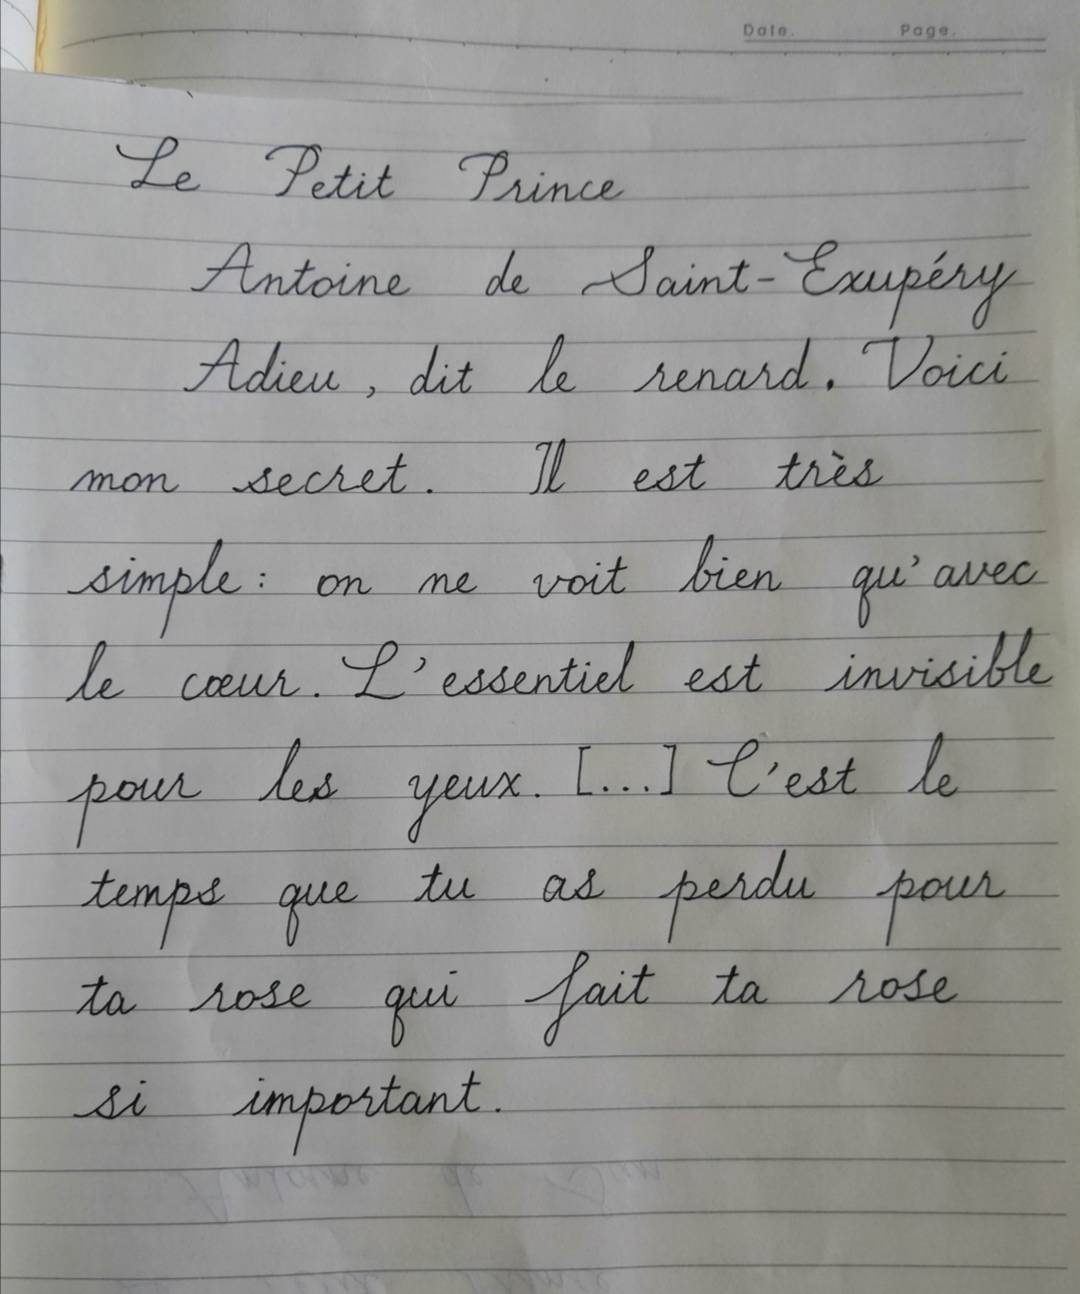 Date. Page.
Le Petit Prince
Antoine de Saint-Exupéry
Adieu, dit le renard. Voici
mon secret. Il est très
simple: on ne voit bien qu'avec
le cœur. L'essentiel est invisible
pour les yeux. [...] C'est le
temps que tu as perdu pour
ta rose qui fait ta rose
si important.